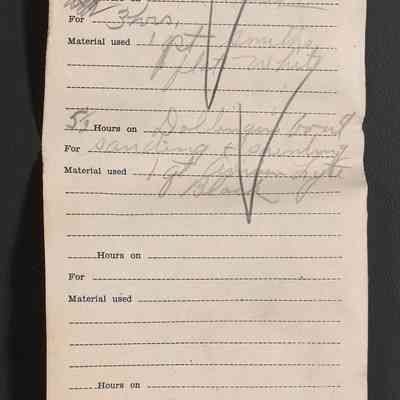 Hours on
For 3 hrs,
Material used 1 pt Smiths
flt White
5½ Hours on Dollinger boat
For sanding & painting
Material used 1 qt
Black
Hours on
For
Material used
Hours on